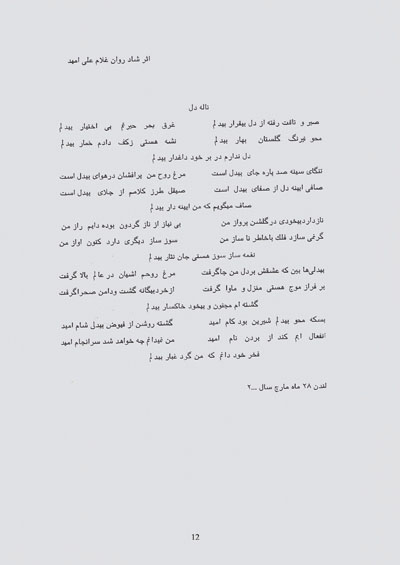 اثر شاد روان غلام علی امید
ناله دل
صبر و تاقت رفته از دل بیقرار بیدلم غرق بحر حیرتم بی اختیار بیدلم
محو نیرنگ گلستان بهار بیدلم نشه هستی زکف دادم خمار بیدلم
دل ندارم در بر خود داغدار بیدلم
تنگای سینه صد پاره جای بیدل است مرغ روح من پرافشان درهوای بیدل است
صافی ایینه دل از صفای بیدل است صیقل طرز کلامم از جلای بیدل است
صاف میگویم که من ایینه دار بیدلم
نازداردبیخودی درگلشن پرواز من بی نیاز از ناز گردون بوده دایم راز من
گرنی سازد فلك باخاطر نا ساز من سوز ساز دیگری دارد کنون اواز من
نغمه ساز سوز هستی جان نثار بیدلم
بیدلیها بین که عشقش بردل من جاگرفت مرغ روحم اشیان در عالم بالا گرفت
بر فراز موج هستی منزل و ماوا گرفت ازخردبیگانه گشت ودامن صحراگرفت
گشته ام مجنون و بیخود خاکسار بیدلم
بسکه محو بیدلم شیرین بود کام امید گشته روشن از فیوض بیدل شام امید
انفعال ایم کند از بردن نام امید من نمیدانم چه خواهد شد سرانجام امید
فخر خود دانم که من گرد غبار بیدلم
لندن ۲۸ ماه مارچ سال ۲۰۰۰
12